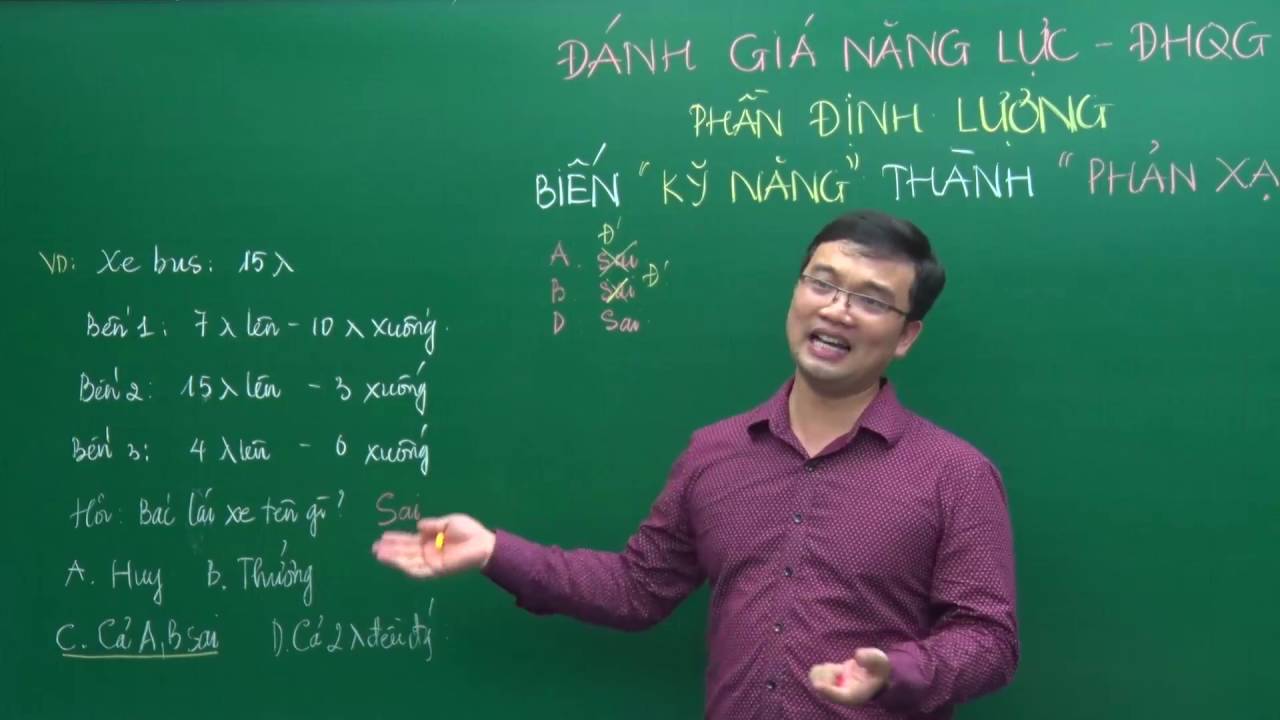 ĐÁNH GIÁ NĂNG LỰC - ĐHQG
PHẦN ĐỊNH LƯỢNG
BIẾN "KỸ NĂNG" THÀNH "PHẢN XẠ
VD: Xe bus: 15 λ
Bến 1: 7 λ lên - 10 λ xuống.
Bến 2: 15 λ lên - 3 xuống
Bến 3: 4 λ lên - 6 xuống
Hỏi: Bác lái xe tên gì? Sai
A. Huy B. Thưởng
C. Cả A, B sai D. Cả 2 λ đều đ
Đ
A. Sai
B. Sai Đ
D. Sai